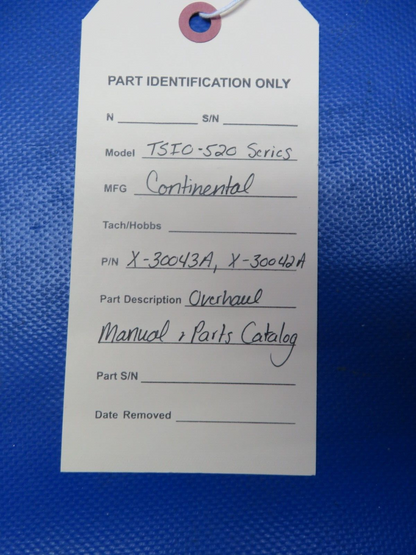 PART IDENTIFICATION ONLY
N ____________ S/N ____________
Model TSIO-520 Series
MFG Continental
Tach/Hobbs ____________
P/N X-30043A, X-30042A
Part Description Overhaul
Manual & Parts Catalog
Part S/N ____________
Date Removed ____________